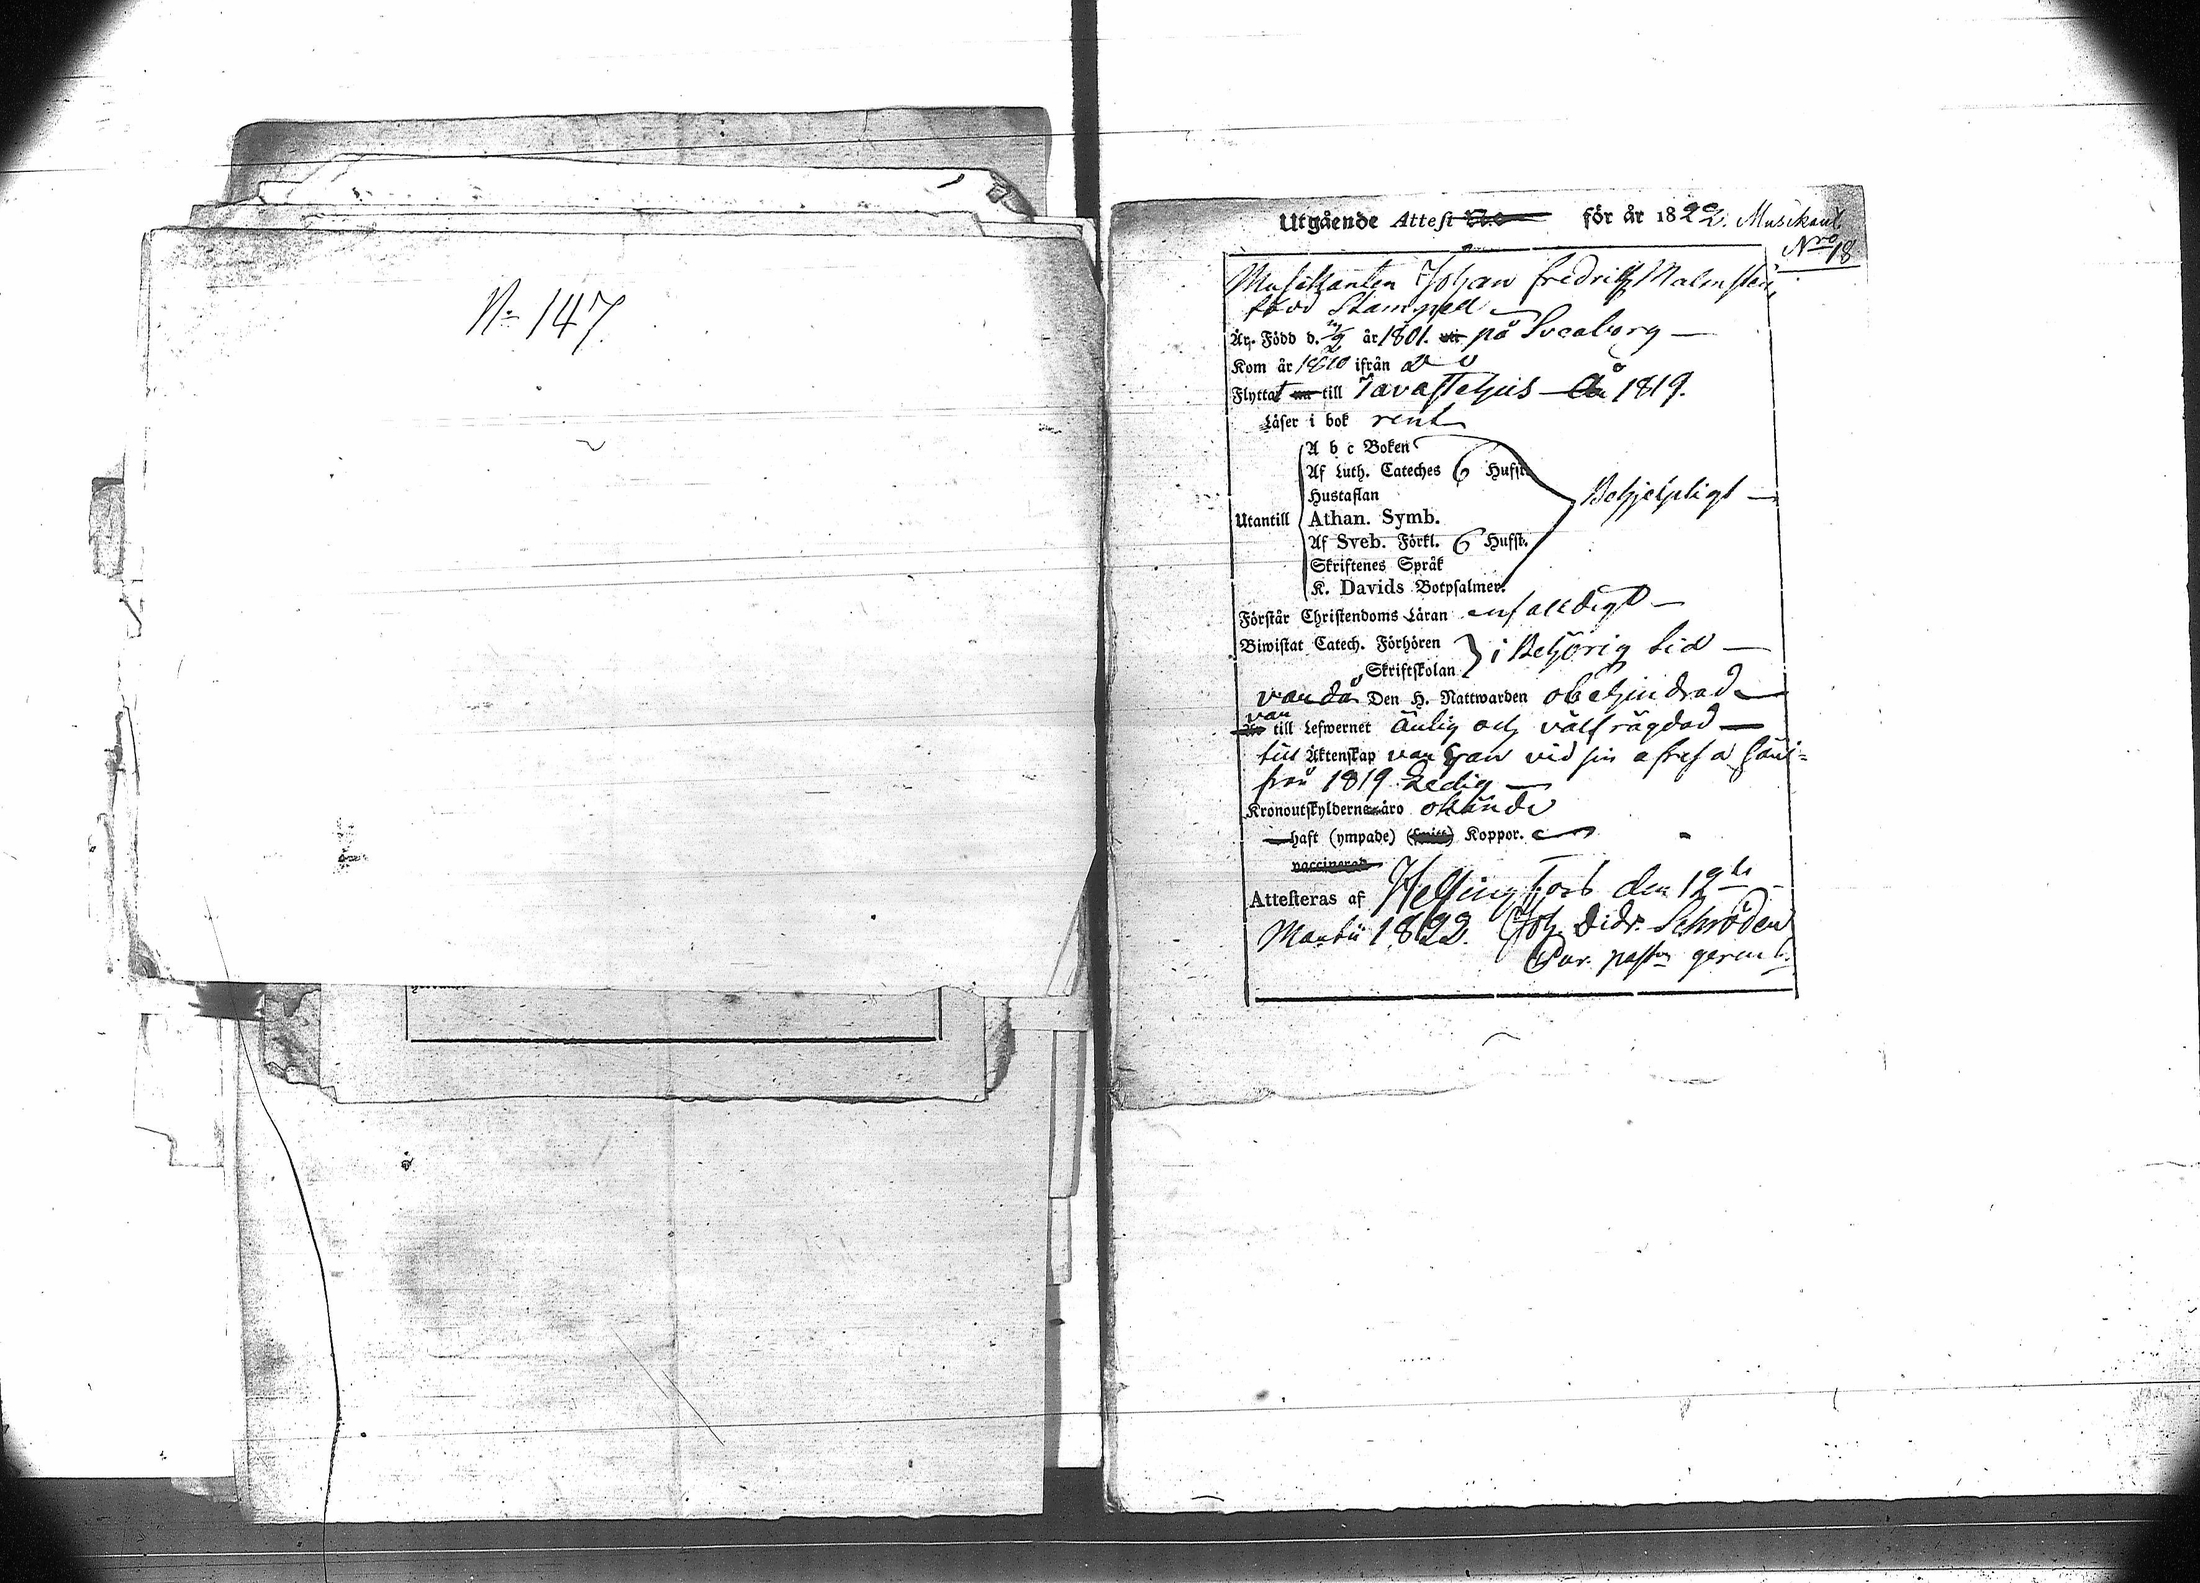 No 147
Utgående Attest No för år 1822. Musikant
Nro 18
Musikanten Johan Fredrik Malmsten
född Stampell
Är Född d. 2 år 1801. på Sveaborg —
Kom år 1810 ifrån
Flyttat nu till Tavastehus — År 1819.
Läser i bok rent
A b c Boken
Af Luth. Cateches 6 Hufst.
Hustaflan
Behjelpligt —
Utantill Athan. Symb.
Af Sveb. Förkl. 6 Hufst.
Skriftenes Språk
K. Davids Botpsalmer.
Förstår Christendoms Läran enfaldigt —
Biwistat Catech. Förhören
Skriftskolan } i Behörig tid —
var då Den H. Nattwarden obehindrad —
var
Är till Lefwernet ärlig och välfrägdad —
till Äktenskap var han vid sin afresa häri-
från 1819 Ledig —
Kronoutskylderne äro okände
haft (ympade) Koppor.
vaccinerad
Attesteras af Helsingfors den 12te
Martii 1822. Joh. Didr. Schröder
Par. pastor gerent.